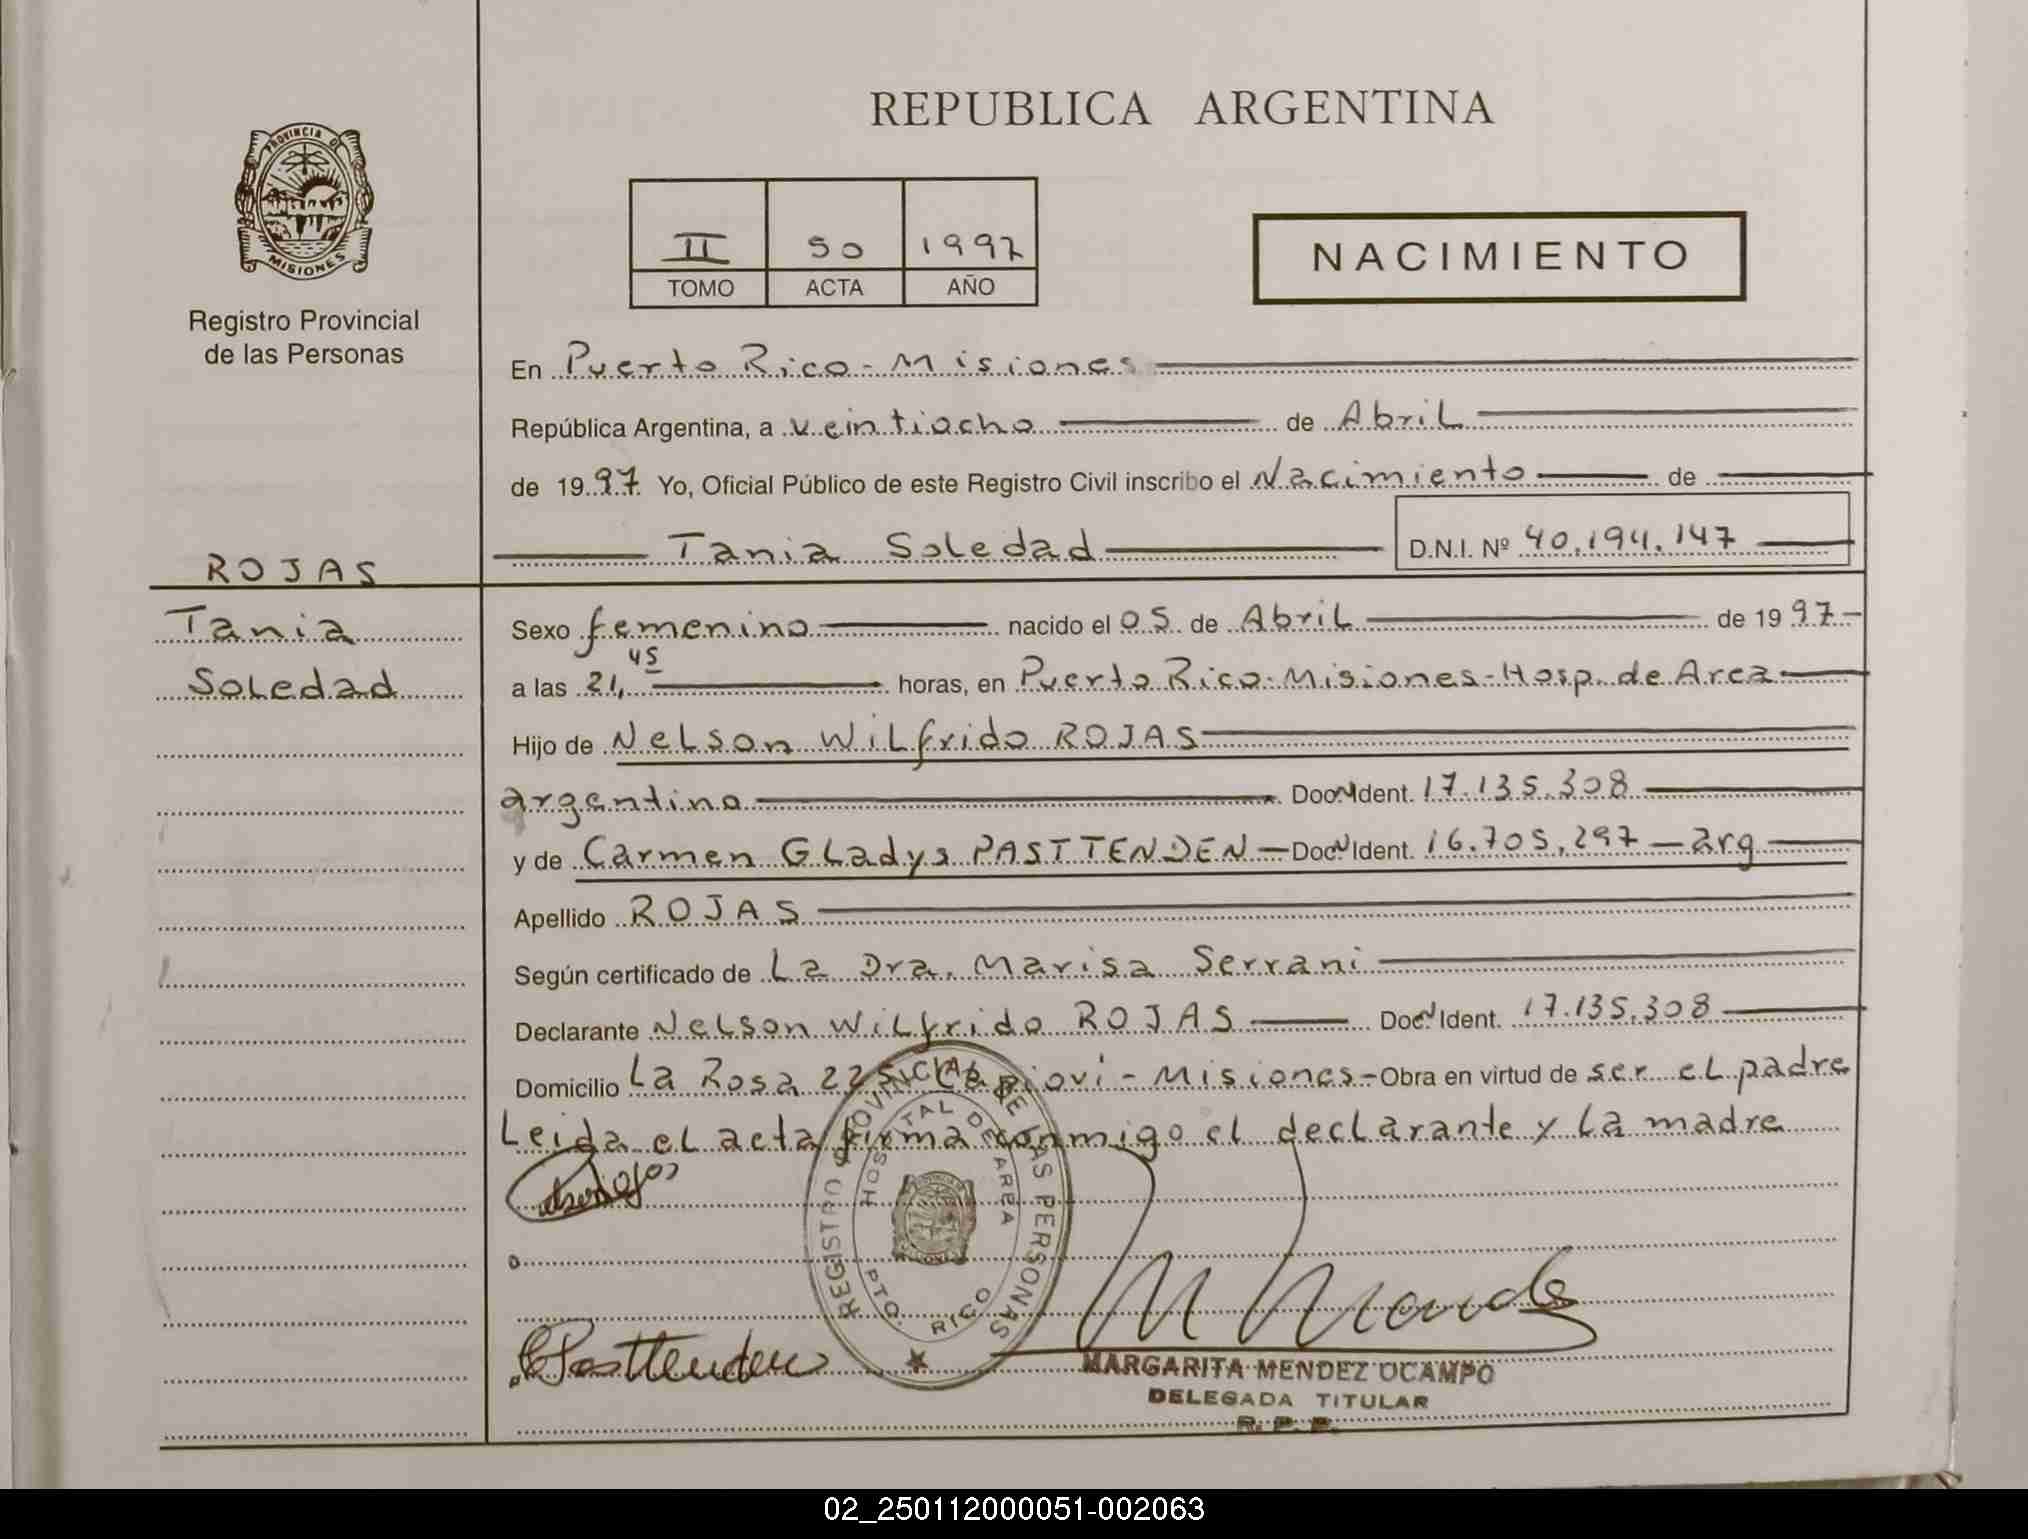 REPUBLICA ARGENTINA
PROVINCIA DE
MISIONES
Registro Provincial
de las Personas
II 50 1997
TOMO ACTA AÑO
NACIMIENTO
En Puerto Rico - Misiones
República Argentina, a veintiocho de Abril
de 1997 Yo, Oficial Público de este Registro Civil inscribo el Nacimiento de
Tania Soledad D.N.I. Nº 40.194.147
ROJAS
Tania
Soledad
Sexo femenino nacido el 05 de Abril de 1997-
a las 21,45 horas, en Puerto Rico-Misiones-Hosp. de Area
Hijo de Nelson Wilfrido ROJAS
argentino Doc. N Ident. 17.135.308
y de Carmen Gladys PASTTENDEN - Doc. N Ident. 16.705.297 - arg
Apellido ROJAS
Según certificado de La Dra. Marisa Serrani
Declarante Nelson Wilfrido ROJAS Doc. N Ident. 17.135.308
Domicilio La Rosa 225 Capiovi - Misiones - Obra en virtud de ser el padre
Leida el acta firma conmigo el declarante y la madre
REGISTRO PROVINCIAL DE LAS PERSONAS
HOSPITAL DE AREA
PTO. RICO
C Pasttenden
M Mendez
MARGARITA MENDEZ OCAMPO
DELEGADA TITULAR
R. P. P.
02_250112000051-002063